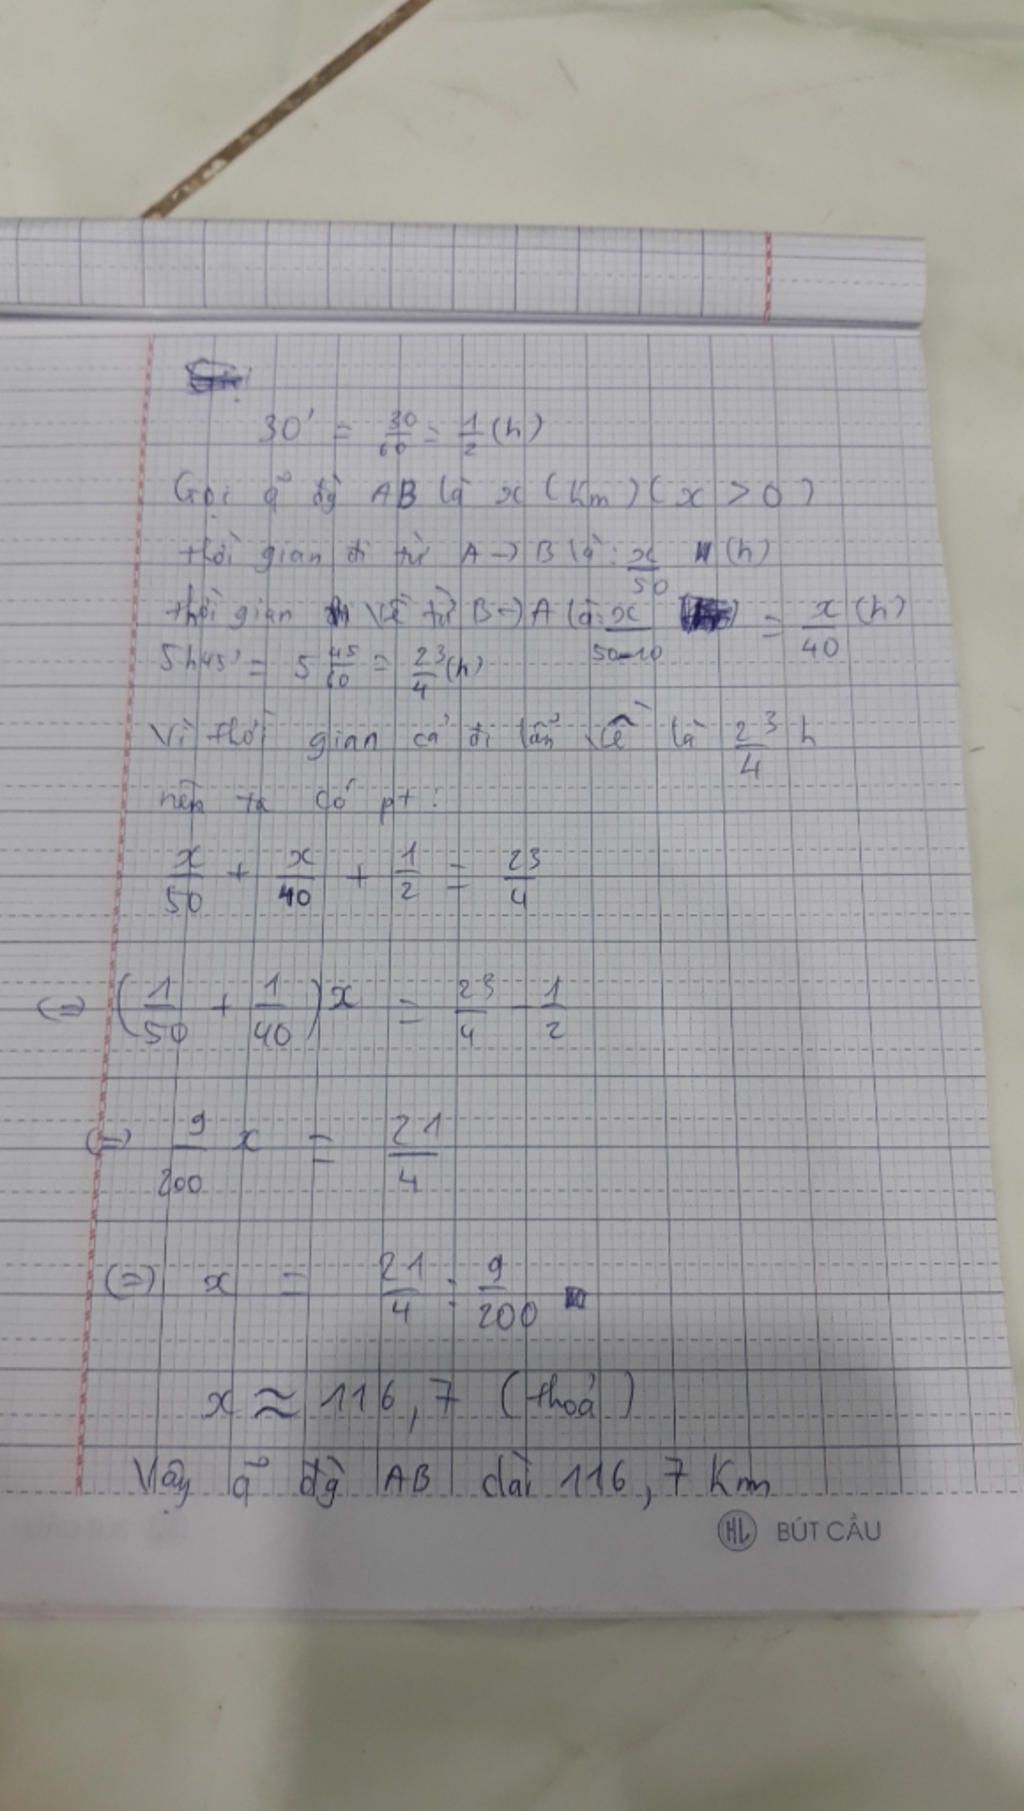 30' = 30/60 = 1/2 (h)
Gọi q̃ đg̀ AB là x (Km) (x > 0)
thời gian đi từ A → B là: x/50 (h)
thời gian về từ B → A là: x/50-10 = x/40 (h)
5h45' = 5 45/60 = 23/4 (h)
Vì thời gian cả đi lẫn về là 23/4 h
nên ta có pt:
x/50 + x/40 + 1/2 = 23/4
(=) (1/50 + 1/40)x = 23/4 - 1/2
(=) 9/200 x = 21/4
(=) x = 21/4 : 9/200
x ≈ 116,7 (thoả)
Vậy q̃ đg̀ AB dài 116,7 Km
HL BÚT CẦU